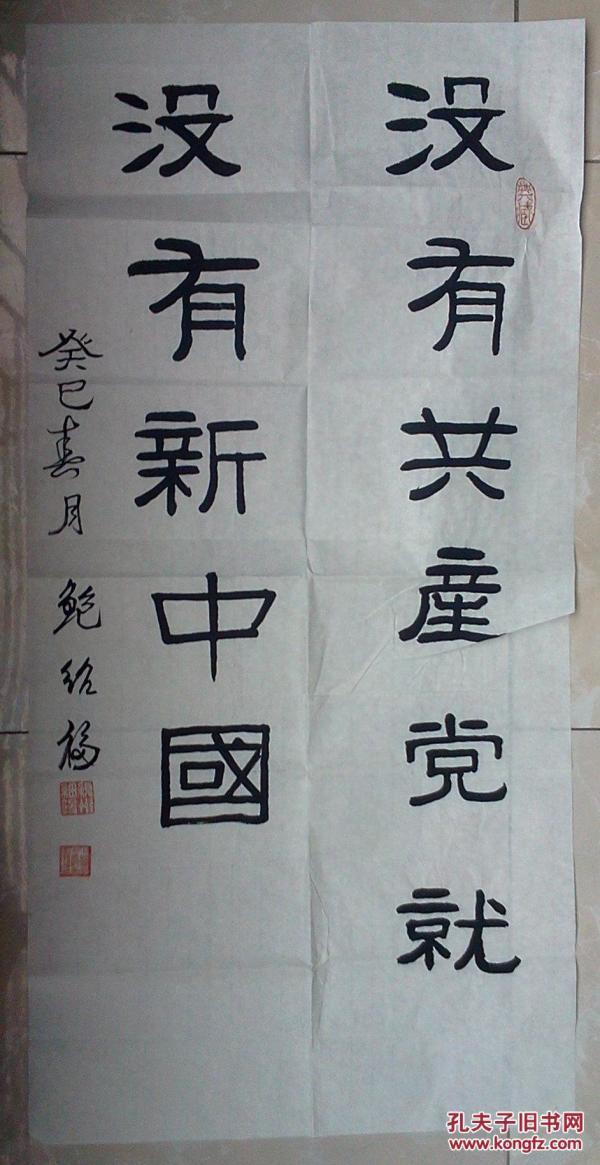 没有共産党就
没有新中國
癸巳春月 鲍绍福
孔夫子旧书网
www.kongfz.com